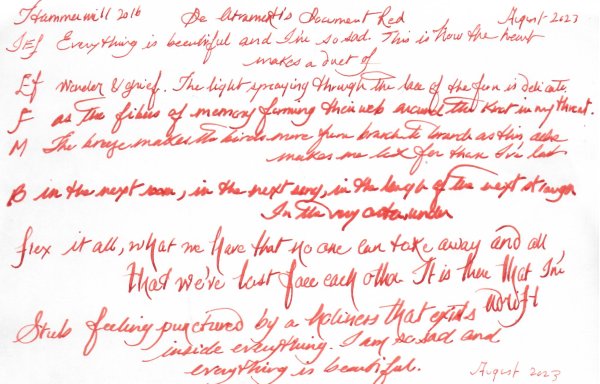 Hammermill 20lb De Atramentis Document Red August 2023
IEF Everything is beautiful and I'm so sad. This is how the heart
makes a duet of
EF wonder & grief. The light spraying through the lace of the fern is delicate
F as the fibers of memory forming their web around the knot in my throat.
M The breeze makes the birds move from branch to branch as this ache
makes me look for those I've lost
B in the next room, in the next song, in the laugh of the next stranger
In the very under
flex it all, what we have that no one can take away and all
that we've lost face each other It is there that I'm
adrift
Stub feeling punctured by a holiness that exists
inside everything. I am so sad and
everything is beautiful. August 2023